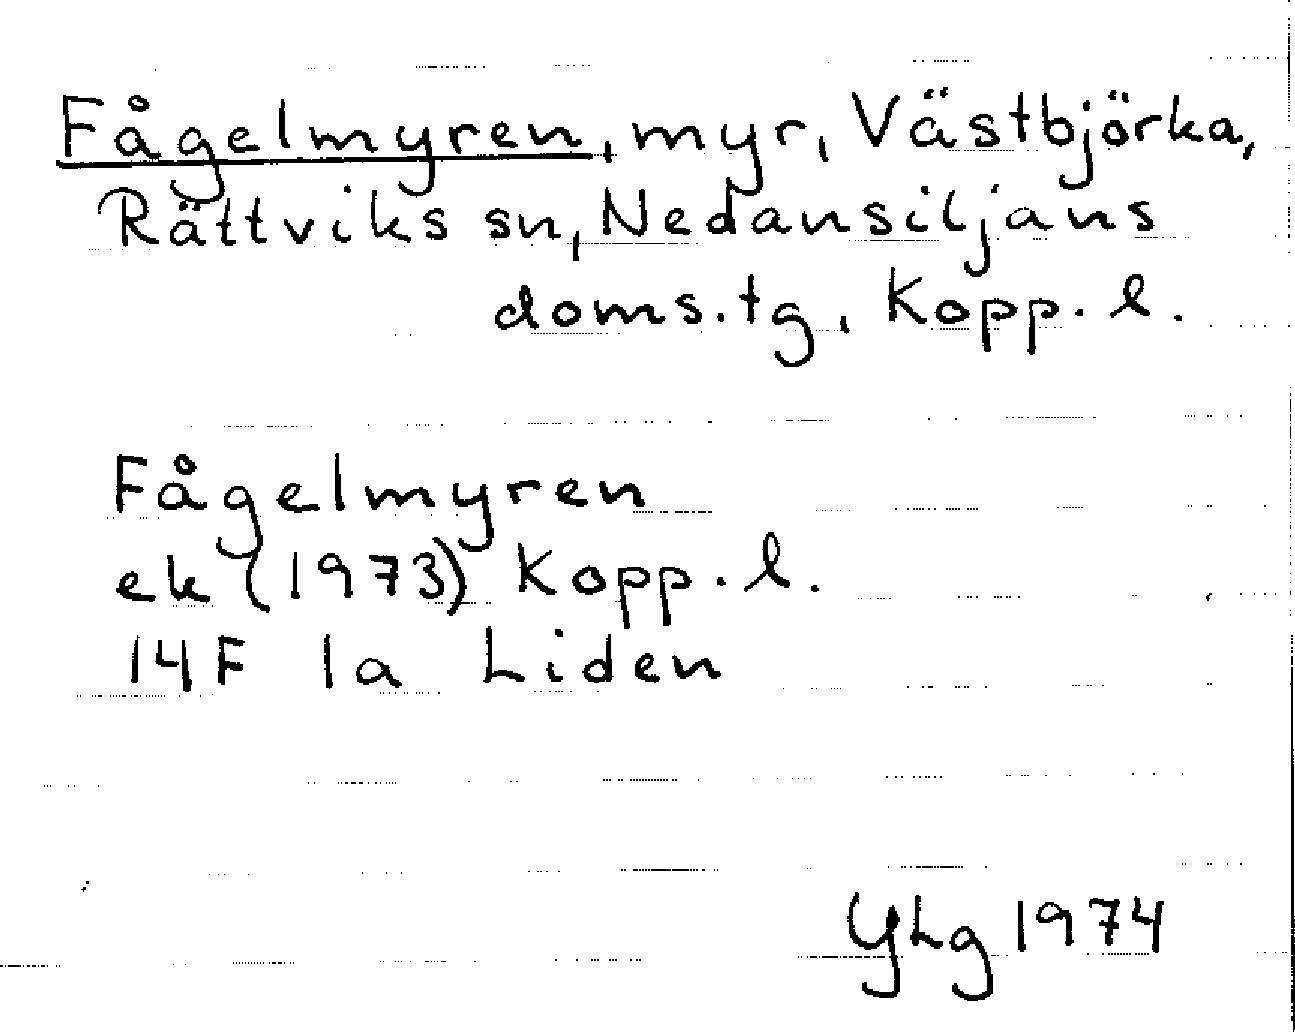 Fågelmyren, myr, Västbjörka,
Rättviks sn, Nedansiljans
doms.tg, Kopp. l.
Fågelmyren
ek (1973) Kopp. l.
14F 1a Liden
YLg 1974